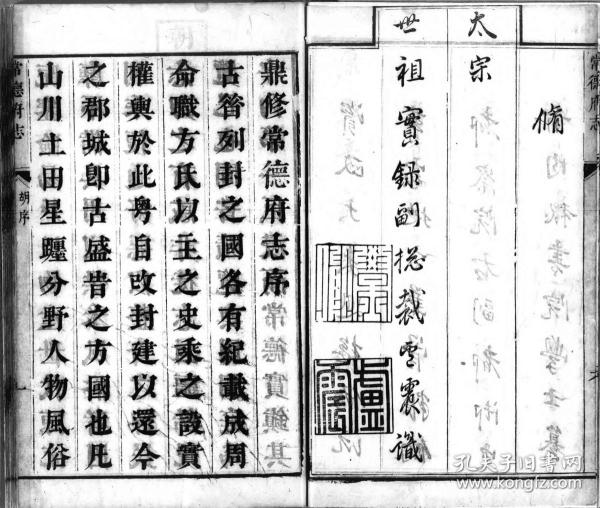 常德府志
脩
太宗
世祖實録副捴裁盧震識
盧震
鼎修常德府志序
古昔列封之國各有紀載成周
命職方氏以主之史乘之設實
權輿於此粤自改封建以還今
之郡城卽古盛昔之方國也凡
山川土田星躔分野人物風俗
常德府志
胡序
孔夫子旧书网
www.kongfz.com